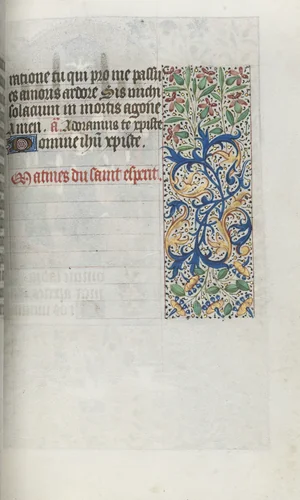 ratione tu qui pro me passus
es amoris ardore Sis michi
solacium in mortis agone
Amen. a. Adoramus te xpiste
Domine ihu xpiste.
Matines du saint esperit.